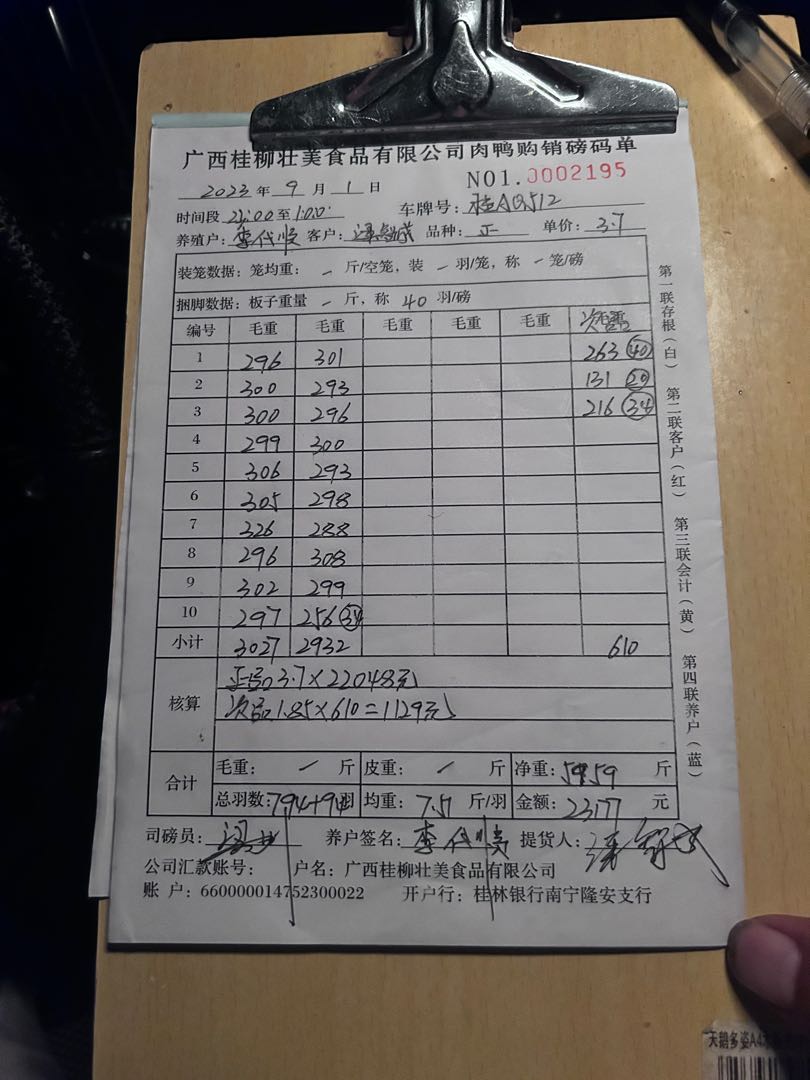 广西桂柳壮美食品有限公司肉鸭购销磅码单
2023年9月1日 NO1.0002195
时间段 至1:00 车牌号:桂AQ512
养殖户:李代顺 客户: 品种:正 单价:3.7
装笼数据:笼均重:/斤/空笼,装/羽/笼,称/笼/磅
捆脚数据:板子重量/斤,称40羽/磅
编号 毛重 毛重 毛重 毛重 毛重
1 296 301 263 40
2 300 293 131 20
3 300 296 216 34
4 299 300
5 306 293
6 305 298
7 326 288
8 296 308
9 302 299
10 297 256 34
小计 3027 2932 610
核算 正品3.7×22048元
次品1.85×610=1129元
合计 毛重:/斤 皮重:/斤 净重:5959斤
总羽数:794+94羽 均重:7.51斤/羽 金额:23177元
司磅员: 养户签名:李代顺 提货人:
公司汇款账号: 户名:广西桂柳壮美食品有限公司
账 户:660000014752300022 开户行:桂林银行南宁隆安支行
第一联存根(白) 第二联客户(红) 第三联会计(黄) 第四联养户(蓝)
天鹅多姿A4